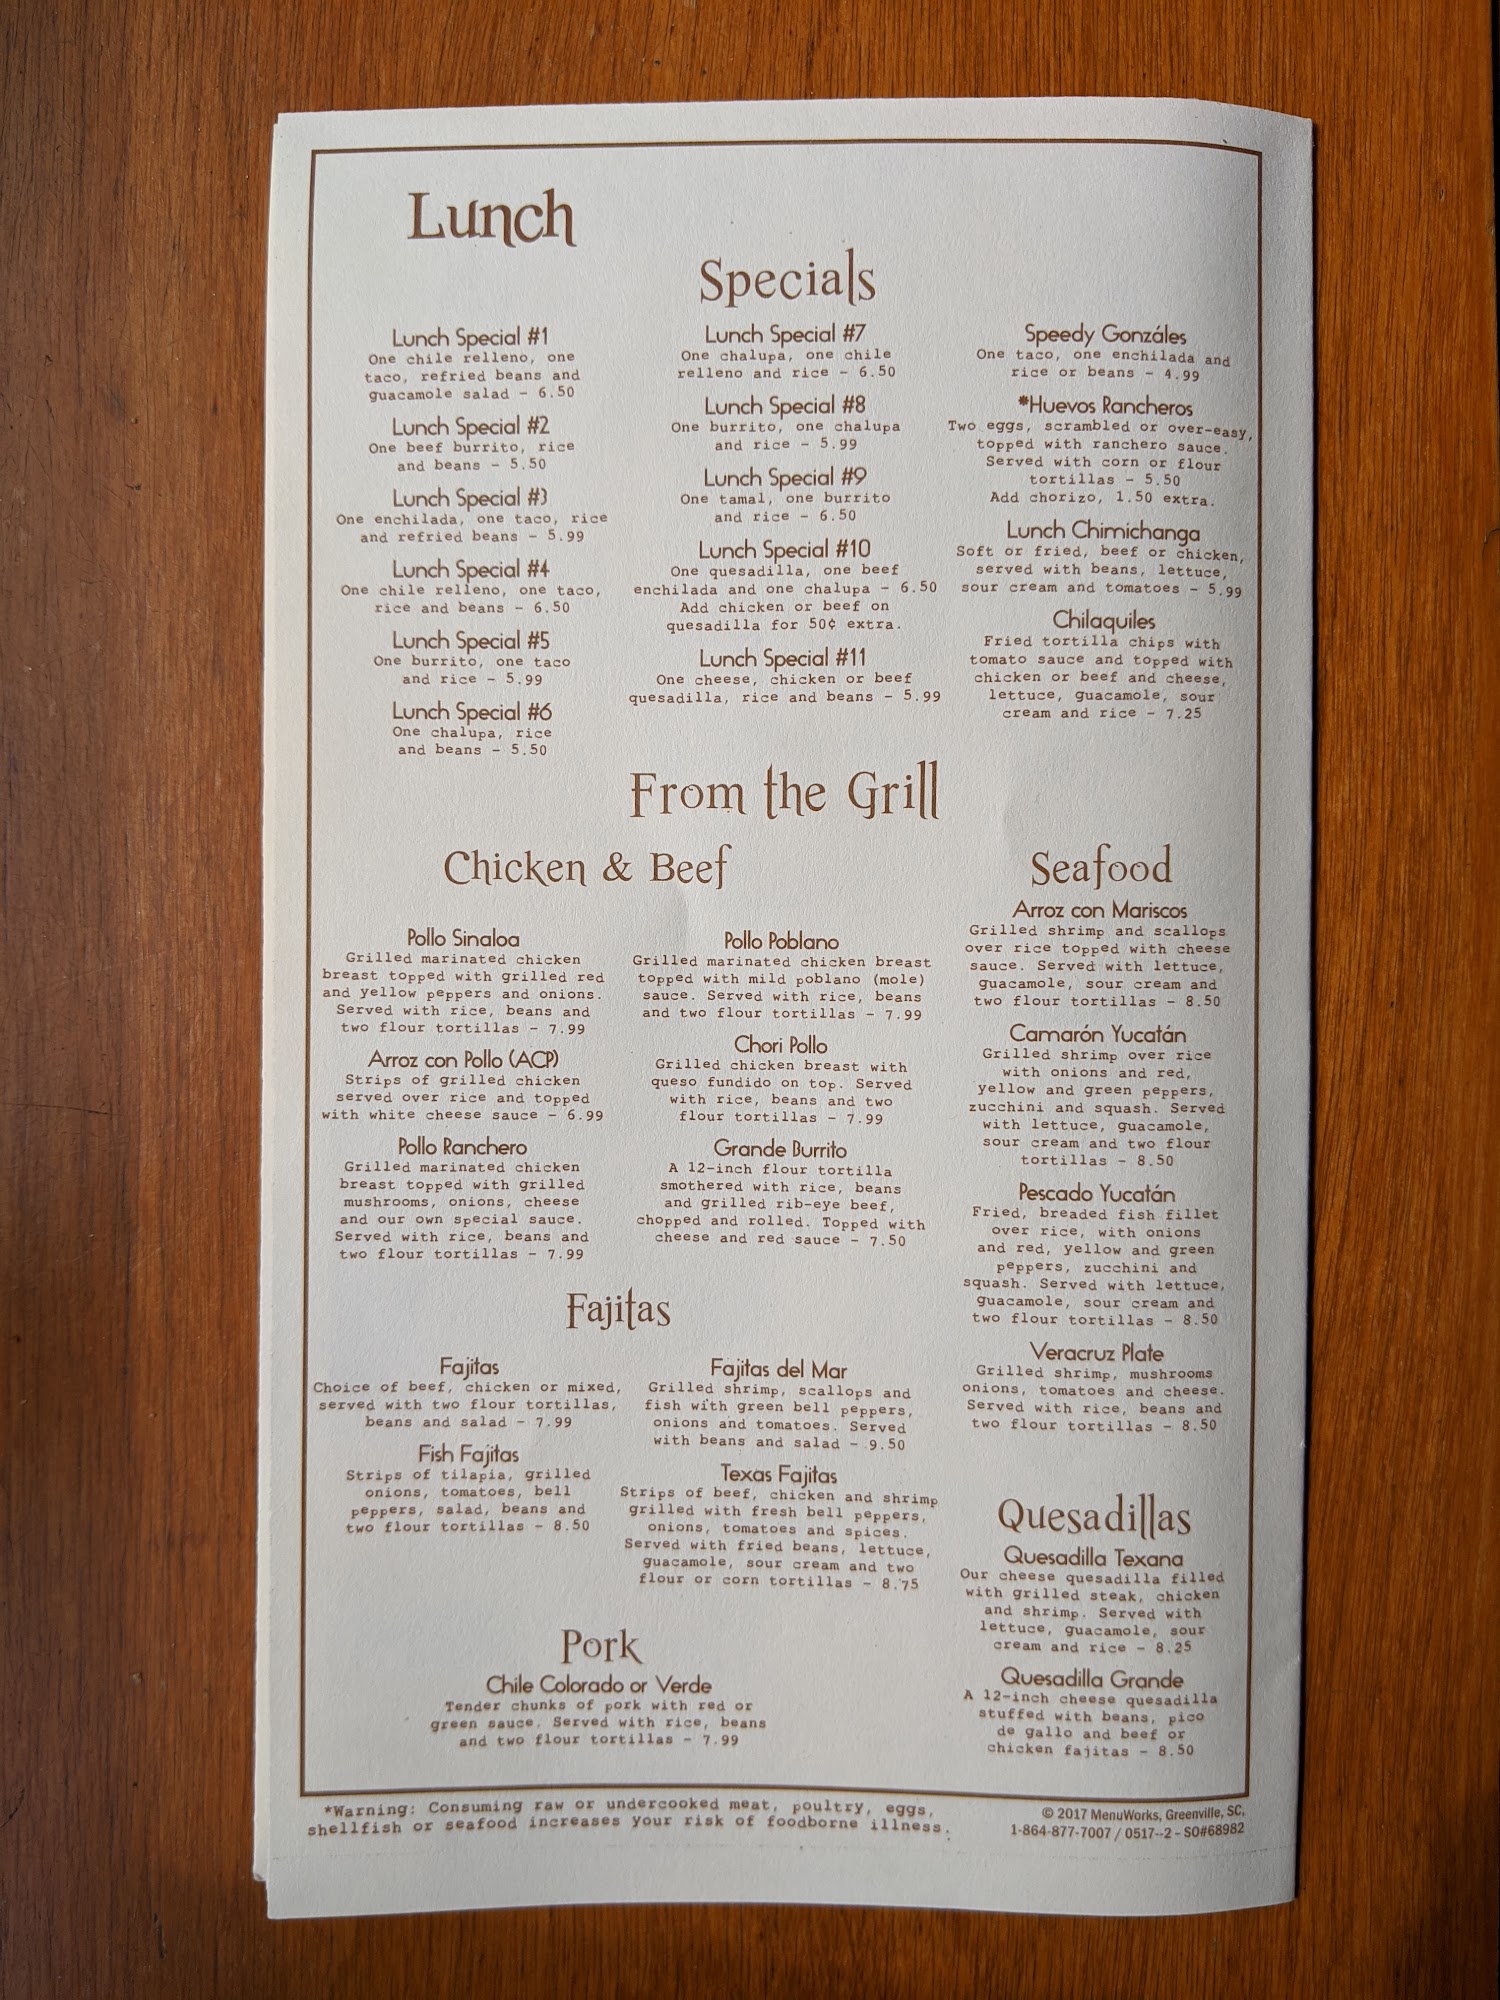 Lunch
Specials
Lunch Special #1
One chile relleno, one
taco, refried beans and
guacamole salad – 6.50
Lunch Special #2
One beef burrito, rice
and beans – 5.50
Lunch Special #3
One enchilada, one taco, rice
and refried beans – 5.99
Lunch Special #4
One chile relleno, one taco,
rice and beans – 6.50
Lunch Special #5
One burrito, one taco
and rice – 5.99
Lunch Special #6
One chalupa, rice
and beans – 5.50
Lunch Special #7
One chalupa, one chile
relleno and rice – 6.50
Lunch Special #8
One burrito, one chalupa
and rice – 5.99
Lunch Special #9
One tamal, one burrito
and rice – 6.50
Lunch Special #10
One quesadilla, one beef
enchilada and one chalupa – 6.50
Add chicken or beef on
quesadilla for 50¢ extra.
Lunch Special #11
One cheese, chicken or beef
quesadilla, rice and beans – 5.99
Speedy Gonzáles
One taco, one enchilada and
rice or beans – 4.99
*Huevos Rancheros
Two eggs, scrambled or over-easy,
topped with ranchero sauce.
Served with corn or flour
tortillas – 5.50
Add chorizo, 1.50 extra.
Lunch Chimichanga
Soft or fried, beef or chicken,
served with beans, lettuce,
sour cream and tomatoes – 5.99
Chilaquiles
Fried tortilla chips with
tomato sauce and topped with
chicken or beef and cheese,
lettuce, guacamole, sour
cream and rice – 7.25
From the Grill
Chicken & Beef
Pollo Sinaloa
Grilled marinated chicken
breast topped with grilled red
and yellow peppers and onions.
Served with rice, beans and
two flour tortillas – 7.99
Arroz con Pollo (ACP)
Strips of grilled chicken
served over rice and topped
with white cheese sauce – 6.99
Pollo Ranchero
Grilled marinated chicken
breast topped with grilled
mushrooms, onions, cheese
and our own special sauce.
Served with rice, beans and
two flour tortillas – 7.99
Pollo Poblano
Grilled marinated chicken breast
topped with mild poblano (mole)
sauce. Served with rice, beans
and two flour tortillas – 7.99
Chori Pollo
Grilled chicken breast with
queso fundido on top. Served
with rice, beans and two
flour tortillas – 7.99
Grande Burrito
A 12-inch flour tortilla
smothered with rice, beans
and grilled rib-eye beef,
chopped and rolled. Topped with
cheese and red sauce – 7.50
Seafood
Arroz con Mariscos
Grilled shrimp and scallops
over rice topped with cheese
sauce. Served with lettuce,
guacamole, sour cream and
two flour tortillas – 8.50
Camarón Yucatán
Grilled shrimp over rice
with onions and red,
yellow and green peppers,
zucchini and squash. Served
with lettuce, guacamole,
sour cream and two flour
tortillas – 8.50
Pescado Yucatán
Fried, breaded fish fillet
over rice, with onions
and red, yellow and green
peppers, zucchini and
squash. Served with lettuce,
guacamole, sour cream and
two flour tortillas – 8.50
Veracruz Plate
Grilled shrimp, mushrooms
onions, tomatoes and cheese.
Served with rice, beans and
two flour tortillas – 8.50
Fajitas
Fajitas
Choice of beef, chicken or mixed,
served with two flour tortillas,
beans and salad – 7.99
Fish Fajitas
Strips of tilapia, grilled
onions, tomatoes, bell
peppers, salad, beans and
two flour tortillas – 8.50
Fajitas del Mar
Grilled shrimp, scallops and
fish with green bell peppers,
onions and tomatoes. Served
with beans and salad – 9.50
Texas Fajitas
Strips of beef, chicken and shrimp
grilled with fresh bell peppers,
onions, tomatoes and spices.
Served with fried beans, lettuce,
guacamole, sour cream and two
flour or corn tortillas – 8.75
Quesadillas
Quesadilla Texana
Our cheese quesadilla filled
with grilled steak, chicken
and shrimp. Served with
lettuce, guacamole, sour
cream and rice – 8.25
Quesadilla Grande
A 12-inch cheese quesadilla
stuffed with beans, pico
de gallo and beef or
chicken fajitas – 8.50
Pork
Chile Colorado or Verde
Tender chunks of pork with red or
green sauce. Served with rice, beans
and two flour tortillas – 7.99
*Warning: Consuming raw or undercooked meat, poultry, eggs,
shellfish or seafood increases your risk of foodborne illness.
© 2017 MenuWorks, Greenville, SC,
1-864-877-7007 / 0517--2 – SO#68982